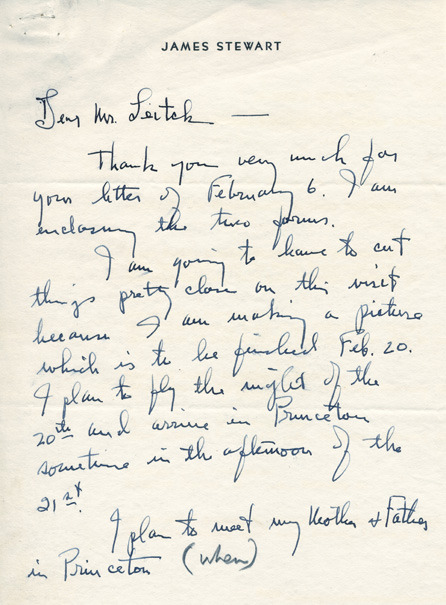 JAMES STEWART
Dear Mr. Leitch —
Thank you very much for
your letter of February 6. I am
enclosing the two forms.
I am going to have to cut
things pretty close on this visit
because I am making a picture
which is to be finished Feb. 20.
I plan to fly the night of the
20th and arrive in Princeton
sometime in the afternoon of the
21st.
I plan to meet my Mother & Father
in Princeton (when)